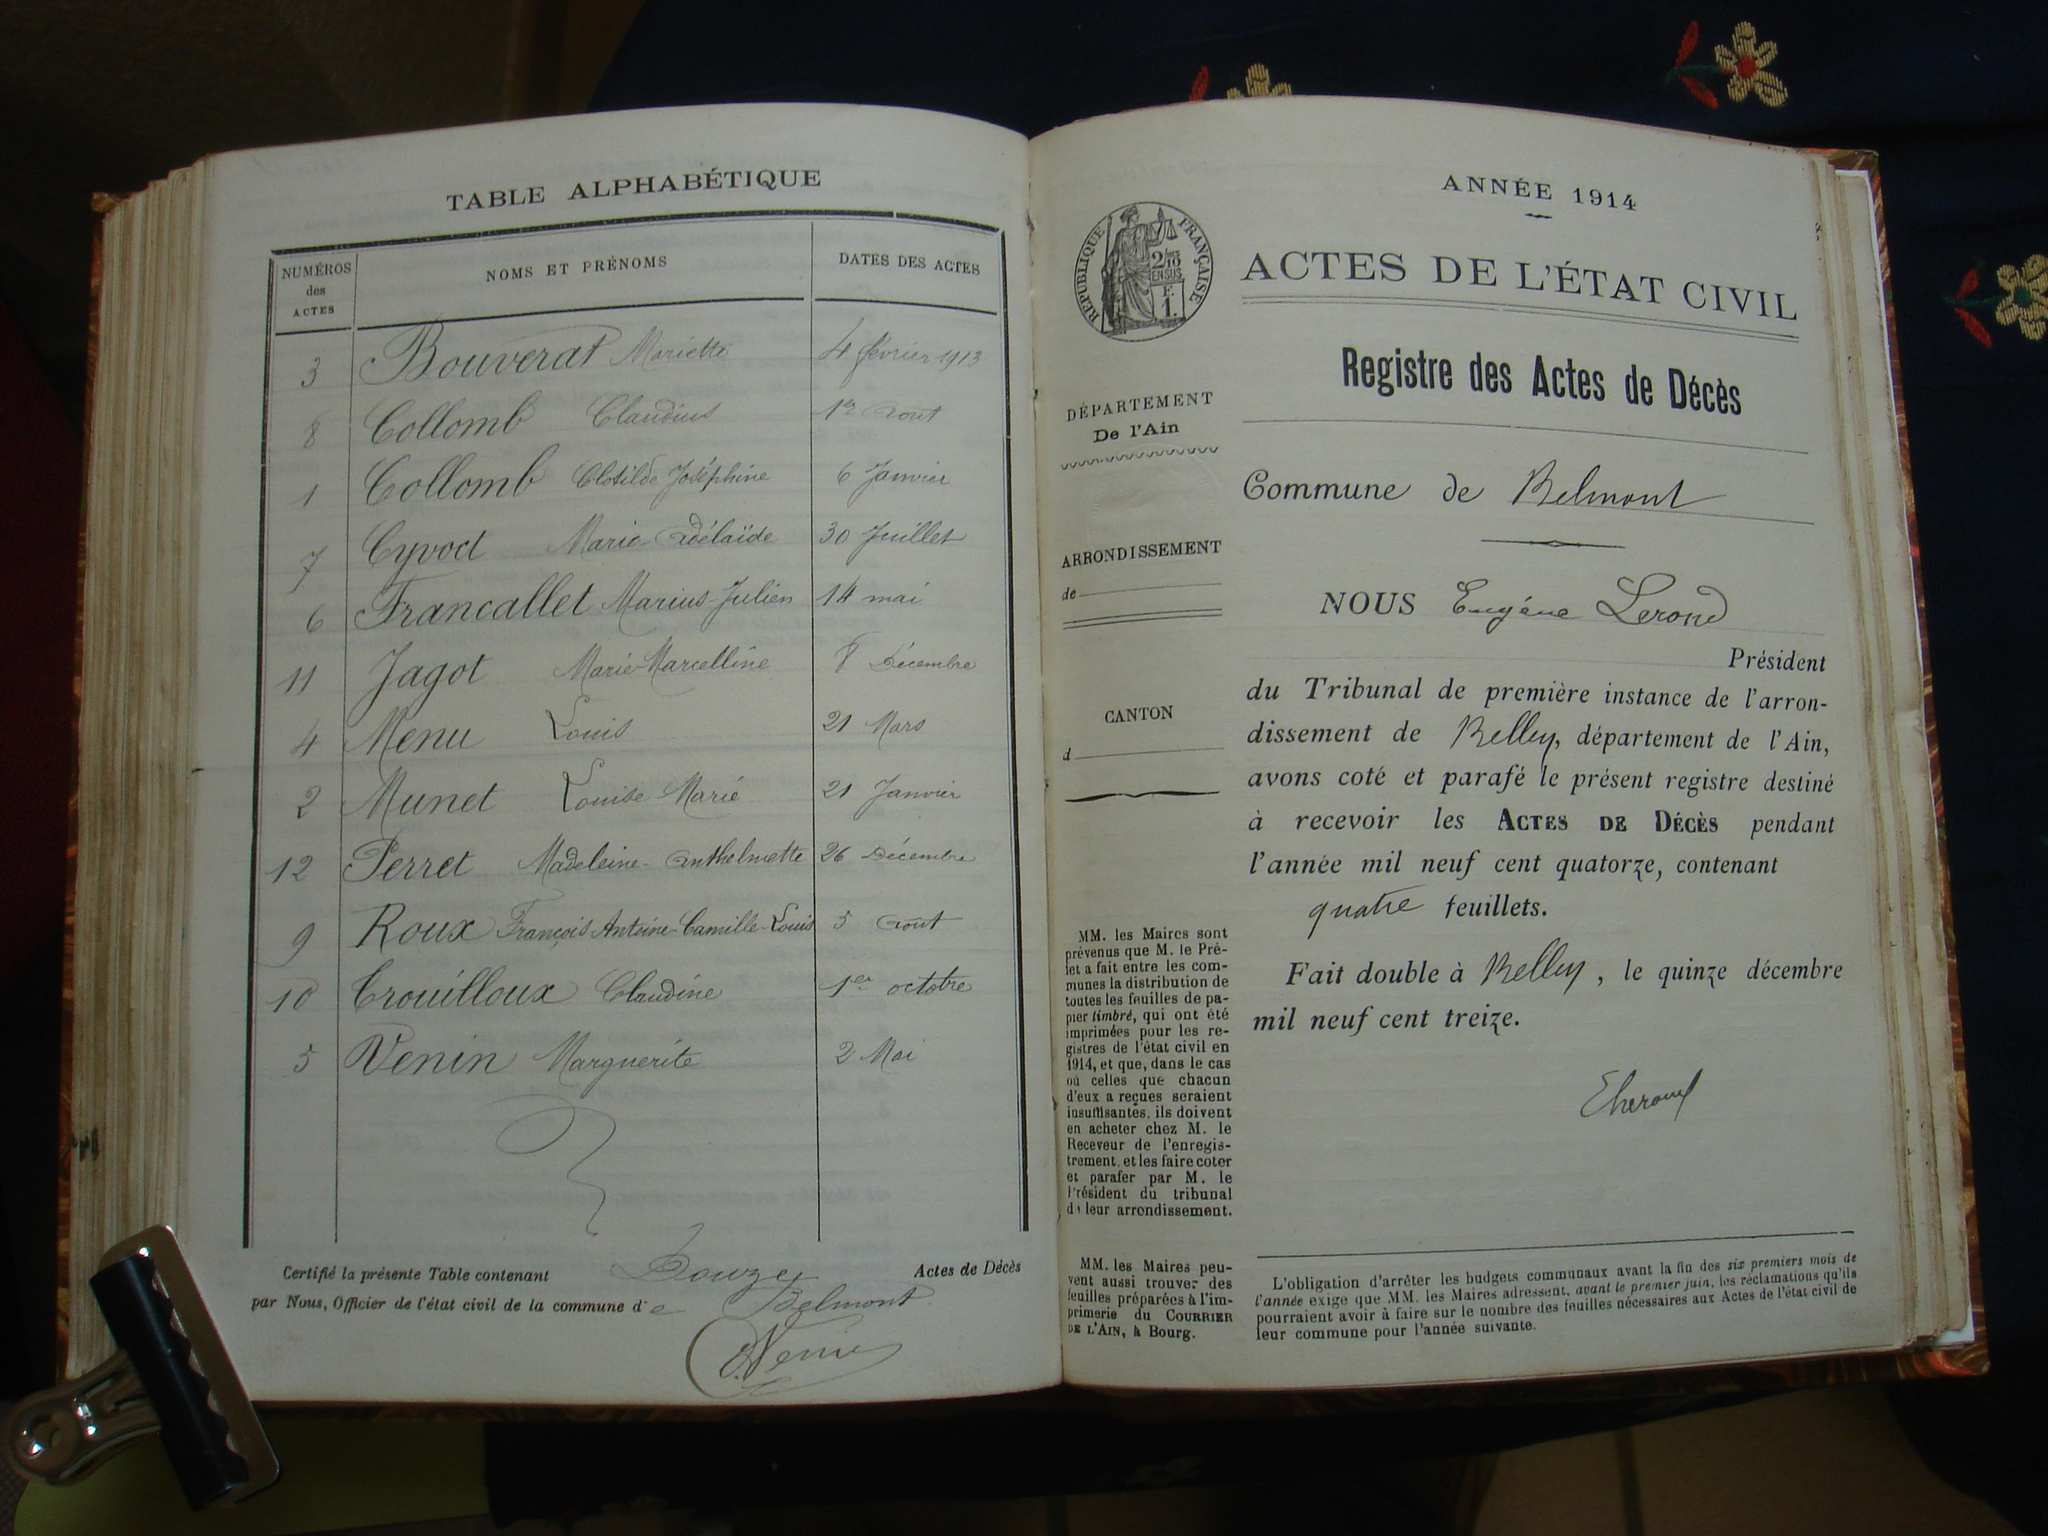 TABLE ALPHABÉTIQUE
NUMÉROS des ACTES NOMS ET PRÉNOMS DATES DES ACTES
3 Bouverat Mariette 4 février 1913
8 Collomb Claudius 1er Août
1 Collomb Clotilde Joséphine 6 Janvier
7 Cyvoct Marie-Adélaïde 30 Juillet
6 Francallet Marius-Julien 14 mai
11 Jagot Marie-Marcelline 8 Décembre
4 Menu Louis 21 Mars
2 Munet Louise-Marie 21 Janvier
12 Perret Madeleine-Anthelmette 26 Décembre
9 Roux François-Antoine-Camille-Louis 5 Août
10 Crouilloux Claudine 1er octobre
5 Venin Marguerite 2 Mai
Certifié la présente Table contenant Douze Actes de Décès
par Nous, Officier de l'état civil de la commune de Belmont
Venin
ANNÉE 1914
RÉPUBLIQUE FRANÇAISE
2/10
EN SUS
F.
1.
ACTES DE L'ÉTAT CIVIL
Registre des Actes de Décès
DÉPARTEMENT
De l'Ain
ARRONDISSEMENT
de
CANTON
d
MM. les Maires sont
prévenus que M. le Pré-
fet a fait entre les com-
munes la distribution de
toutes les feuilles de pa-
pier timbré, qui ont été
imprimées pour les re-
gistres de l'état civil en
1914, et que, dans le cas
où celles que chacun
d'eux a reçues seraient
insuffisantes, ils doivent
en acheter chez M. le
Receveur de l'enregis-
trement, et les faire coter
et parafer par M. le
Président du tribunal
de leur arrondissement.
MM. les Maires peu-
vent aussi trouver des
feuilles préparées à l'im-
primerie du COURRIER
DE L'AIN, à Bourg.
Commune de Belmont
NOUS Eugène Lerond
Président
du Tribunal de première instance de l'arron-
dissement de Belley, département de l'Ain,
avons coté et parafé le présent registre destiné
à recevoir les ACTES DE DÉCÈS pendant
l'année mil neuf cent quatorze, contenant
quatre feuillets.
Fait double à Belley, le quinze décembre
mil neuf cent treize.
L'obligation d'arrêter les budgets communaux avant la fin des six premiers mois de
l'année exige que MM. les Maires adressent, avant le premier juin, les réclamations qu'ils
pourraient avoir à faire sur le nombre des feuilles nécessaires aux Actes de l'état civil de
leur commune pour l'année suivante.